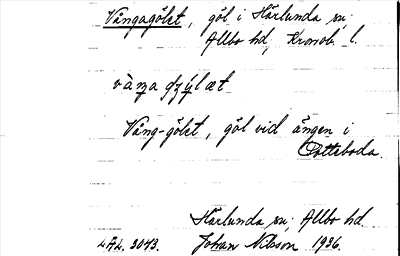 Vångagölet, göl i Härlunda sn;
Allbo hd, Kronob. l.
Vång-gölet, göl vid ängen i
Härlunda sn; Allbo hd.
LAL. 3043. Johan Nilsson 1936.